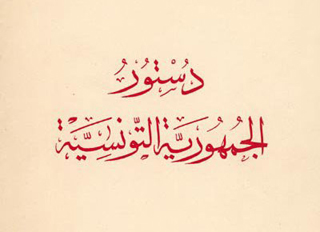 دُسْتُورُ
الجُمْهُورِيَّة التُّونِسِيَّة